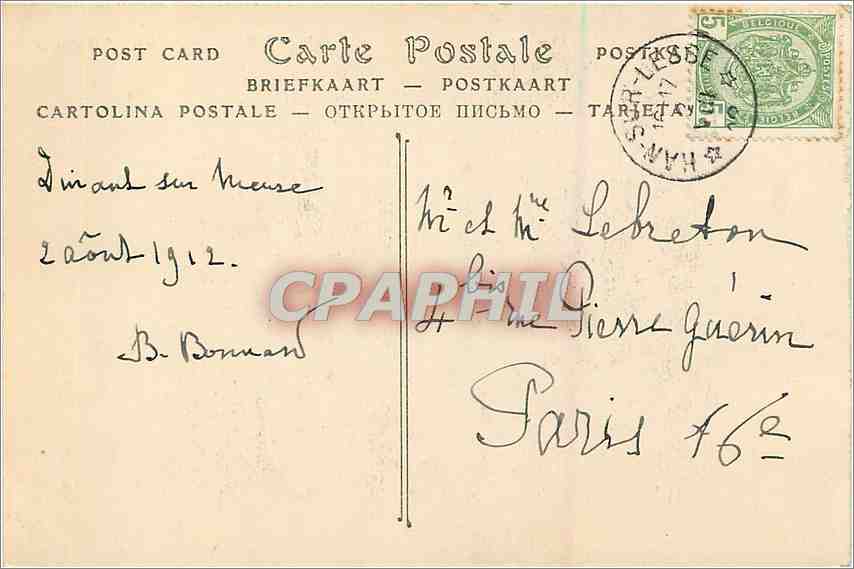 POST CARD Carte Postale POSTKA
BRIEFKAART — POSTKAART
CARTOLINA POSTALE — ОТКРЫТОЕ ПИСЬМО — TARJETA
BELGIQUE
5 5
HAN-SUR-LESSE
Dinant sur Meuse
2 août 1912.
B. Bonnard
Mr et Mme Lebreton
4 bis rue Pierre Guérin
Paris 16e
CPAPHIL